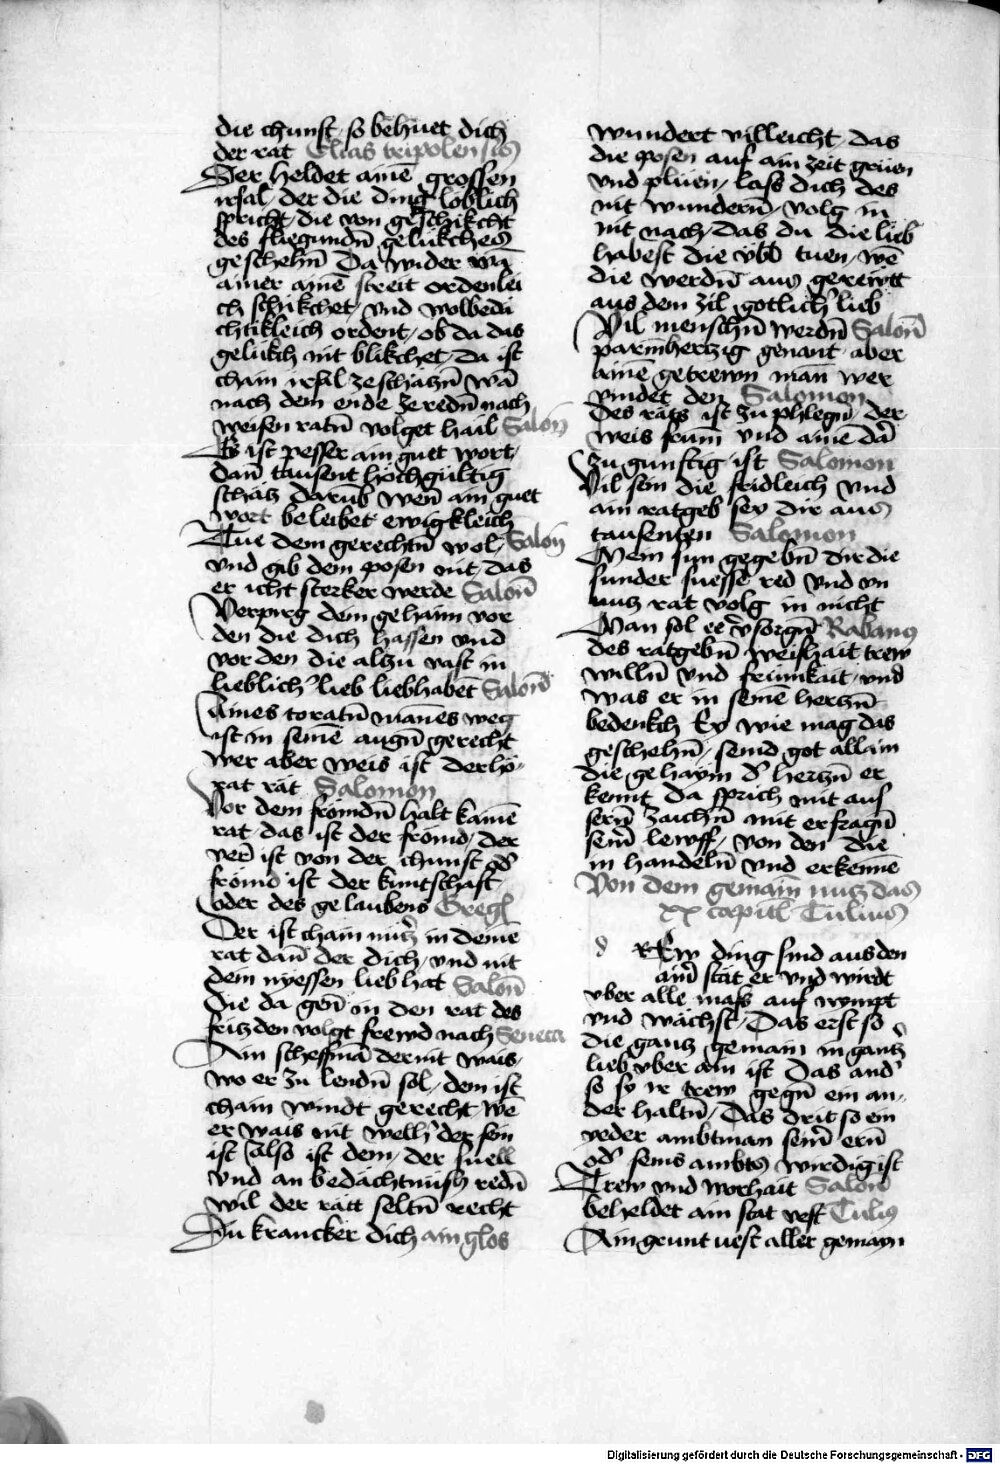 die chunst / so behuet dich
der rat Elias tripolensis
Der heldet aine grossen
irsal / der die ding loblich
spricht / die von geschikcht
des fliegundn̄ gelukches
geschehn̄ Da wider wā
ainer ainē streit ordenlei
ch schikchet / vnd wolbedi
chtikleich ordent / ob da das
gelukch nit blikchet / da ist
chain irsal zeschäczn̄ wā
nach dem ende ze redn̄ nach
weisen ratn̄ volget hail Salon̄
Es ist pesser ain gutt wort /
dan̄ tausent hochgultig
schäcz darub wen̄ ain guet
wort beleibet ewigkleich
Tue dem gerechtn̄ wol / Salon̄
vnd gib dem posen nit / das
er icht sterker werde Salon̄
Verpirg dein gehaim vor
den die dich hassen vnd
vor den die alczu vast in
lieblicher lieb liebhabēt Salon̄
Aines toratn̄ mannes weg
ist in seinē augn̄ gerecht
wer aber weis ist der hö /
rat rät Salomon
Vor dem frömdn̄ halt kainē
rat / das ist der frömd / der
verr̄ ist von der chunst oder
frömd ist der kuntschaft /
oder des gelaubens Gregl
Der ist chain nücz in deine
rat dan̄ der dich / vnd nit
dem nyessen lieb hat Salon̄
die da gen̄ in den rat des
friczden volgt frewd nach Seneca
Ain scheffmā der nit wais /
wo er zu lendn̄ sol / dem ist
chain windt gerecht wē
er wais nit welher der sein
ist also ist dem / der snell
vnd an bedächtnüsß redn̄
wil der rätt seltn̄ recht
Du krancker dich ain glos
wundert villeicht / das
die posen auf ain zeit grüen
vnd plüen / lass dich des
nit wundern̄ / volg in
nit nach / das du die lieb
habest die vbl tuen / wē
die werdn̄ aus gerewtt
aus dem zil gotlicher lieb
Vil menschn̄ werdn̄ Salon̄
parmherczig genant / aber
aine getrewn man wer
vindet den Salomon
Des räts ist zu phlegn̄ / der
weis frum̄ vnd ainē dar̄
zu gunstig ist Salomon
Vil sein die fridleich vnd
ain ratgeb sey dir aus
tausenten Salomon
Mein sun gegebn̄ dir die
sunder suesse red vnd vn
nucz rat volg in nicht
Man sol er vsorgn̄ Rabanus
des ratgebn̄ weishait trew
willn̄ vnd frümkait / vnd
was er in seinē herczn̄
bedenkch Ey wie mag das
geschehn̄ / seind got allain
die gehaym der herczn̄ er
kennt da sprich mit aus
sern̄ zaichn̄ mit erfragn̄
sein̄ lewff / von den die
in handeln̄ vnd erkennē
Von dem gemain nucz das
xx capitl Tulius
d rEw ding sind aus den
ain̄ stat er vnd wirdt
vber alle mass auf nympt
vnd wächst / Das erst so
die gantz gemain in gantz
lieb vber ain ist Das ander
so sy ir trew gegn̄ ein an /
der haltn̄ / Das drit so ein
yeder ambtman sein̄ ern̄
oder seins ambts wirdig ist
Trew vnd worhait Salon̄
beheldet ain stat vest Tulius
Ain grunt vest aller gemayn
Digitalisierung gefördert durch die Deutsche Forschungsgemeinschaft - DFG